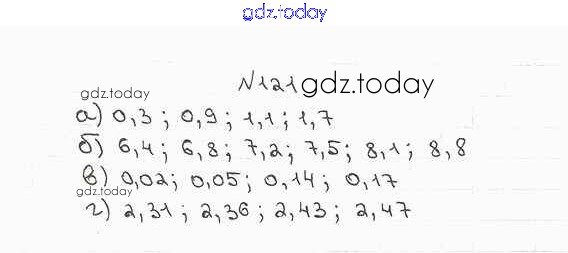 gdz.today
gdz.today
N121 gdz.today
а) 0,3; 0,9; 1,1; 1,7
б) 6,4; 6,8; 7,2; 7,5; 8,1; 8,8
в) 0,02; 0,05; 0,14; 0,17
г) 2,31; 2,36; 2,43; 2,47
gdz.today
gdz.today